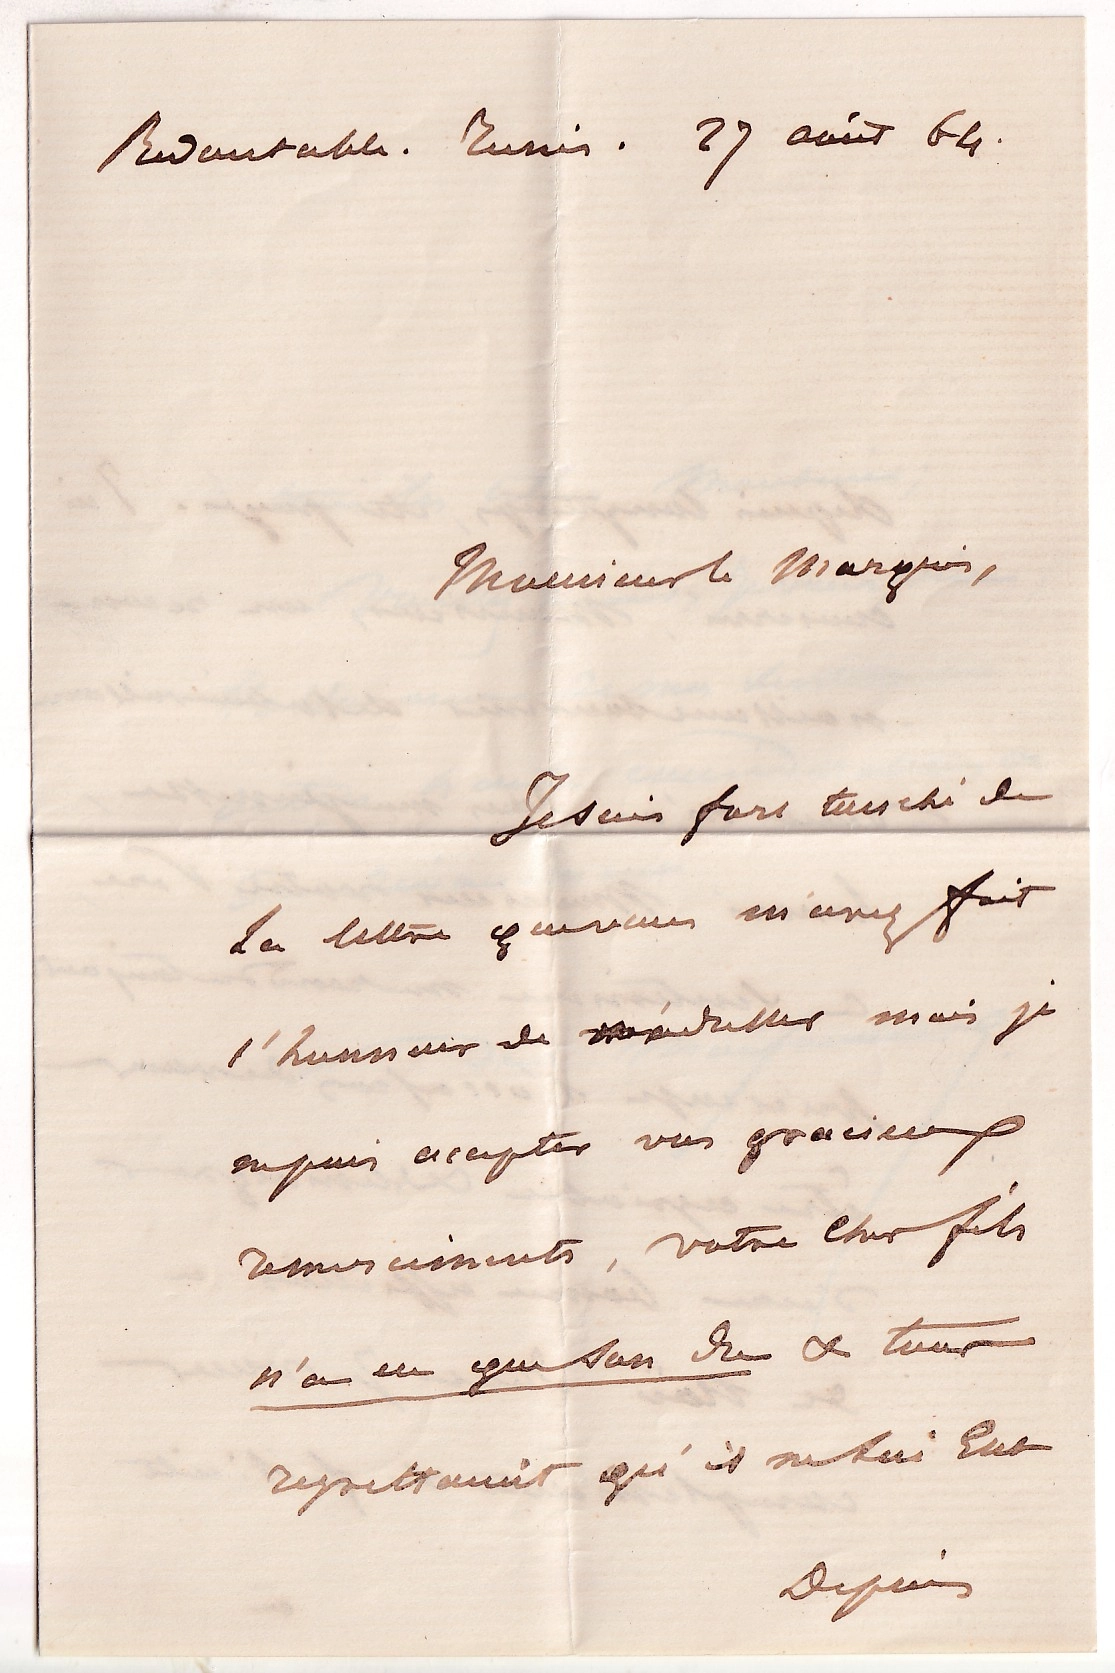 Redoutable. Tunis. 27 août 64.
Monsieur le Marquis,
Je suis fort touché de
la lettre que vous m'avez fait
l'honneur de m'adresser mais je
ne puis accepter vos gracieux
remerciements, votre cher fils
n'a eu que son du & tous
regrettaient qu'il ne lui eut
Depuis